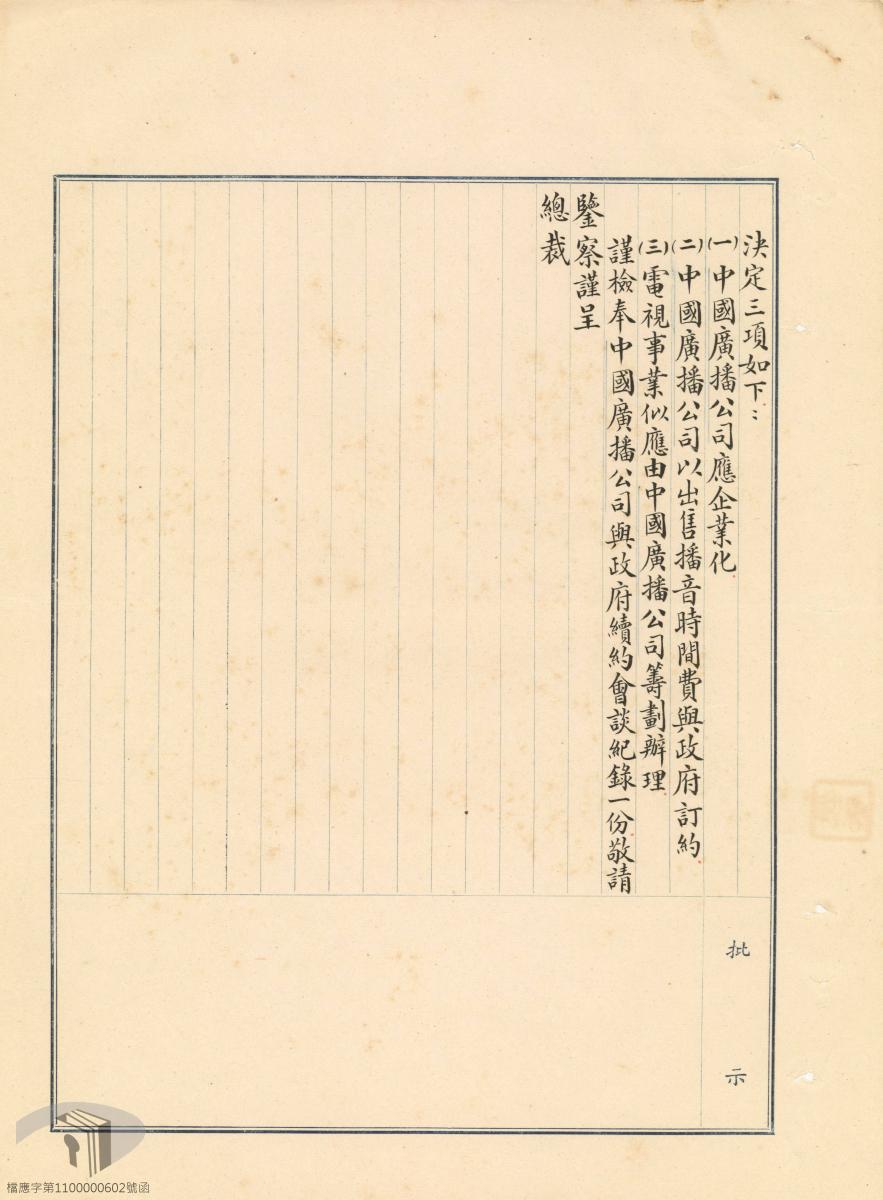 決定三項如下：
(一)中國廣播公司應企業化
(二)中國廣播公司以出售播音時間費與政府訂約
(三)電視事業似應由中國廣播公司籌劃辦理
謹檢奉中國廣播公司與政府續約會談紀錄一份敬請
鑒察謹呈
總裁
批示
檔應字第1100000602號函